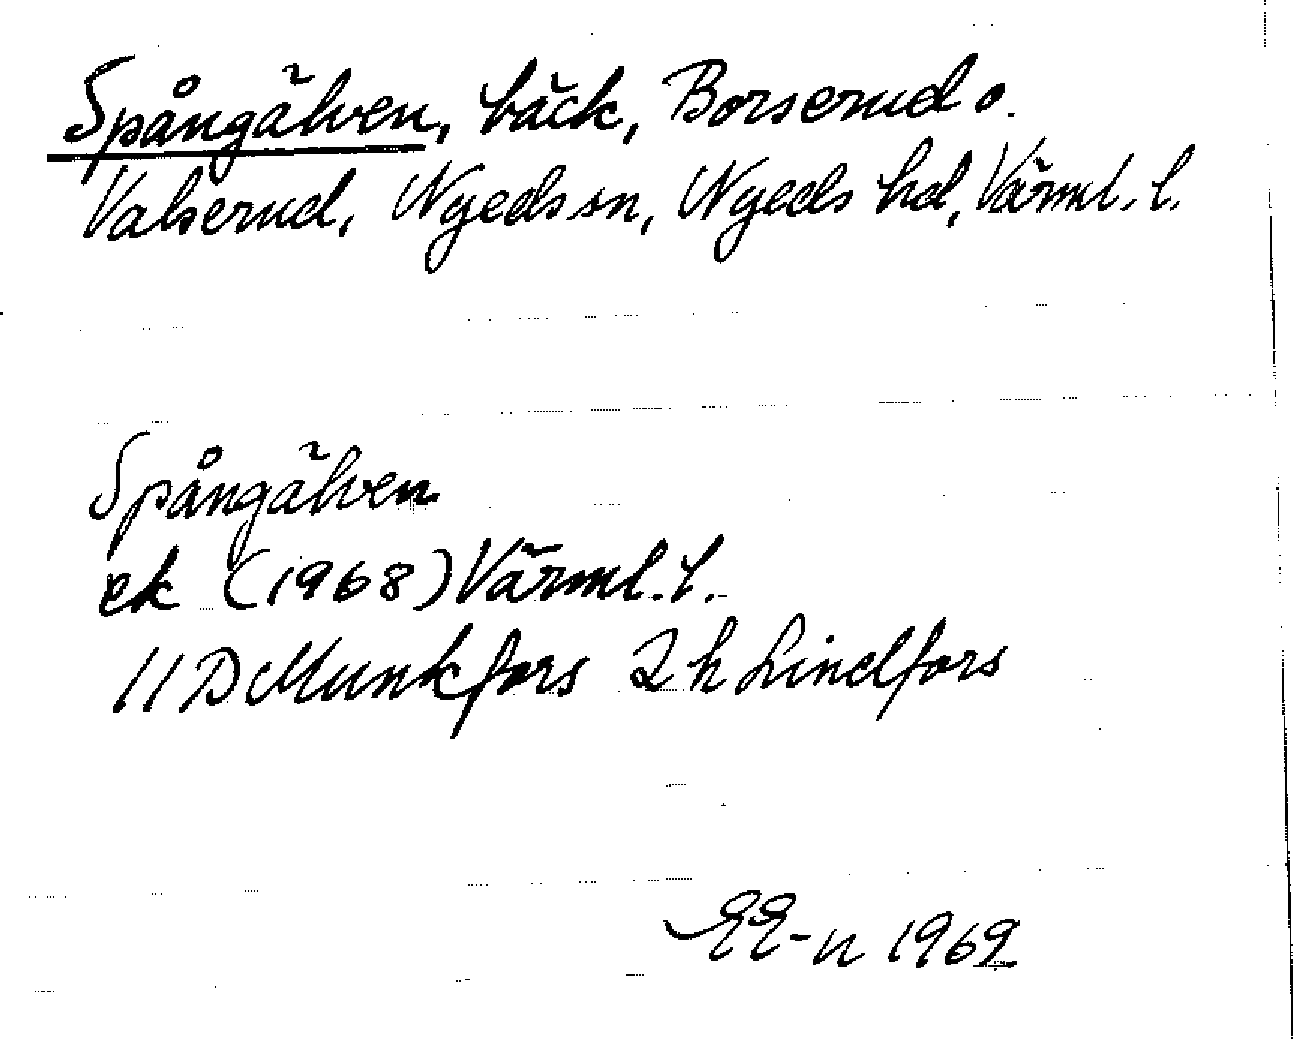 Spångälven, bäck, Borserud o.
Valserud, Nyeds sn, Nyeds hd, Värml. l.
Spångälven
ek (1968) Värml. l.
11 D Munkfors 2 h Lindfors
EE-n 1969